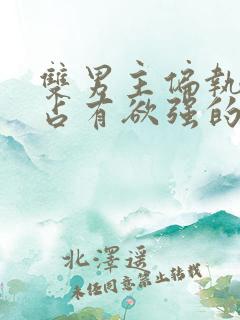 雙男主偏執
占有欲強的
北澤遥
未经同意禁止转载